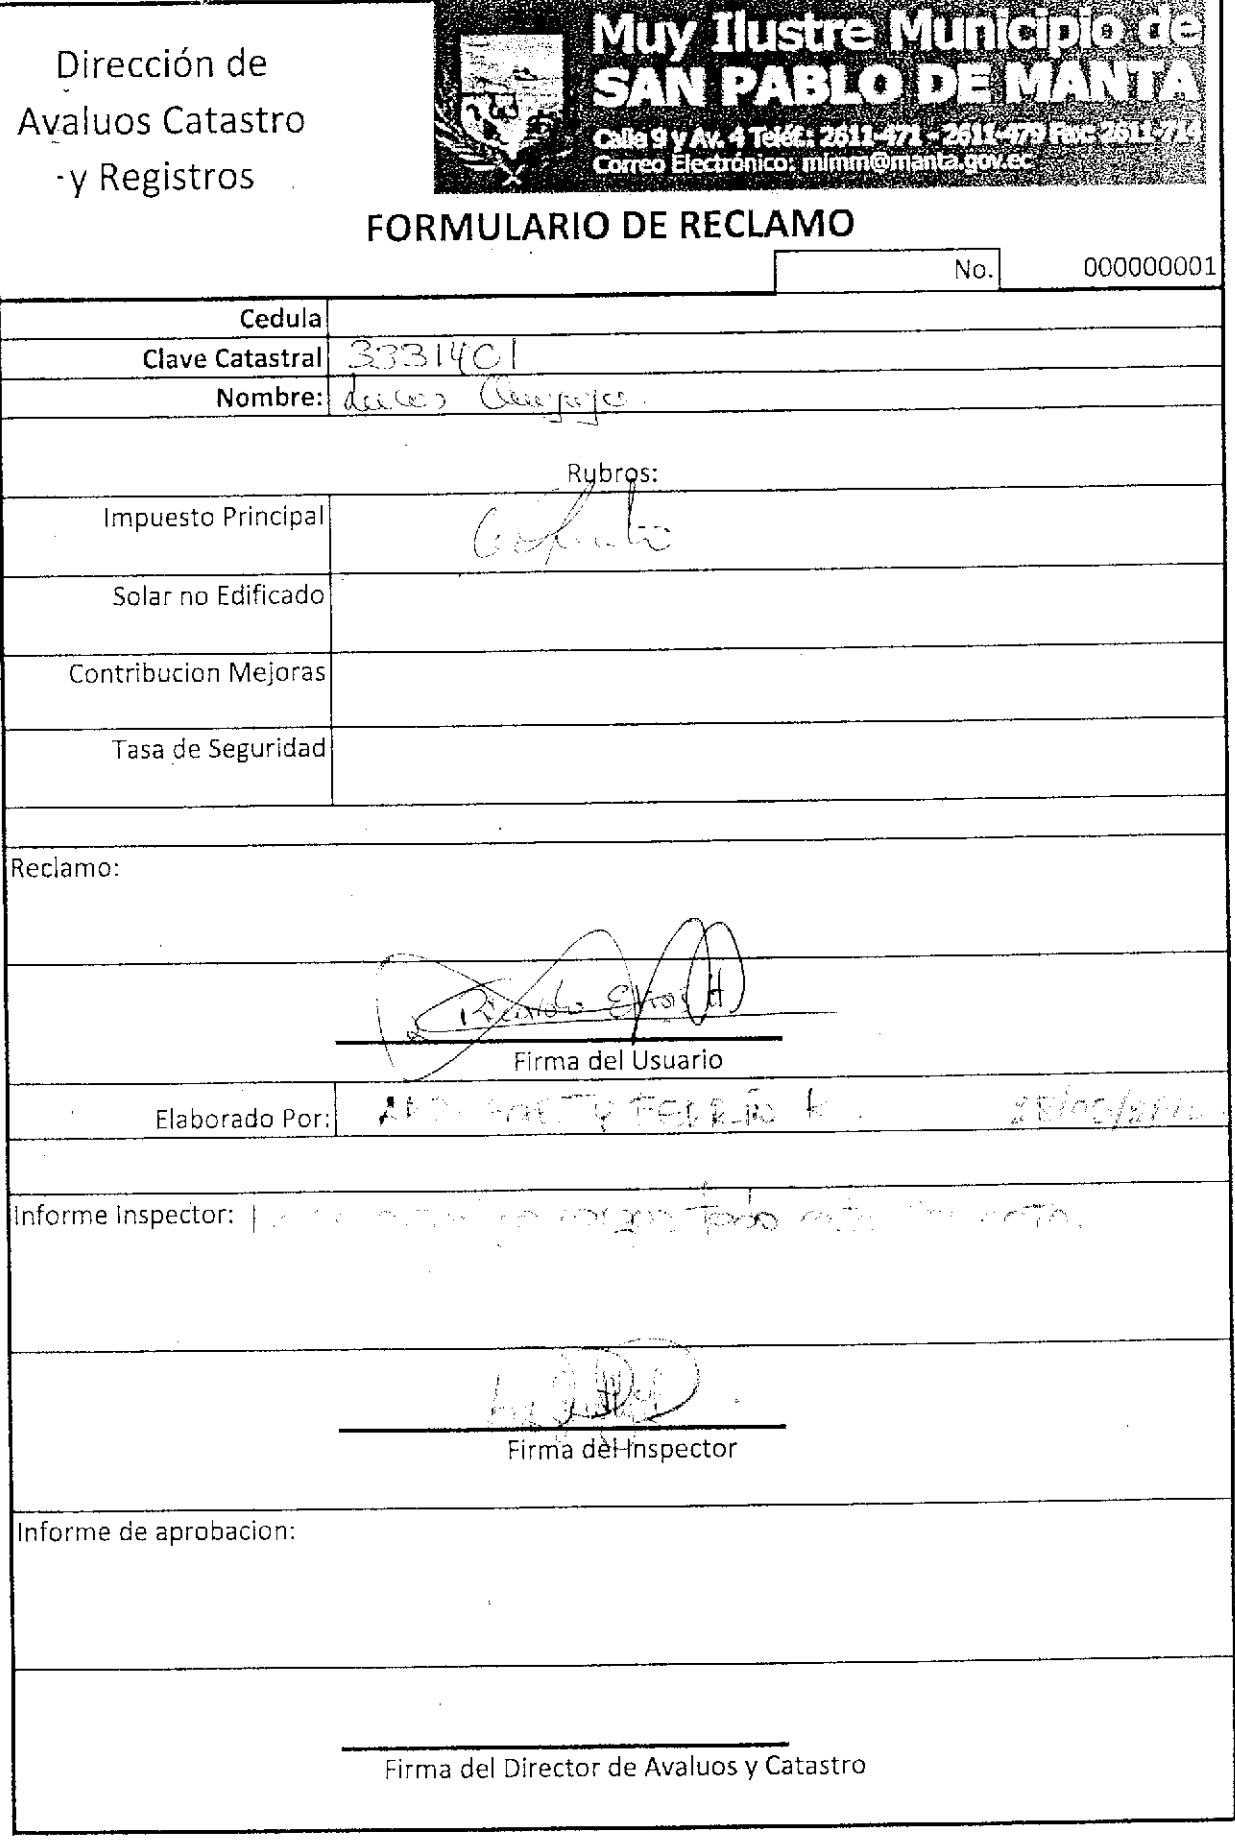 Dirección de
Avaluos Catastro
y Registros
Muy Ilustre Municipio de
SAN PABLO DE MANTA
Calle 9 y Av. 4 Teléf.: 2611-471 - 2611-479 Fax: 2611-714
Correo Electrónico: mimm@manta.gov.ec
FORMULARIO DE RECLAMO
No. 000000001
Cedula
Clave Catastral 3331401
Nombre:
Rubros:
Impuesto Principal
Solar no Edificado
Contribucion Mejoras
Tasa de Seguridad
Reclamo:
Ricardo
Firma del Usuario
Elaborado Por:
Informe Inspector: todo
Firma del Inspector
Informe de aprobacion:
Firma del Director de Avaluos y Catastro